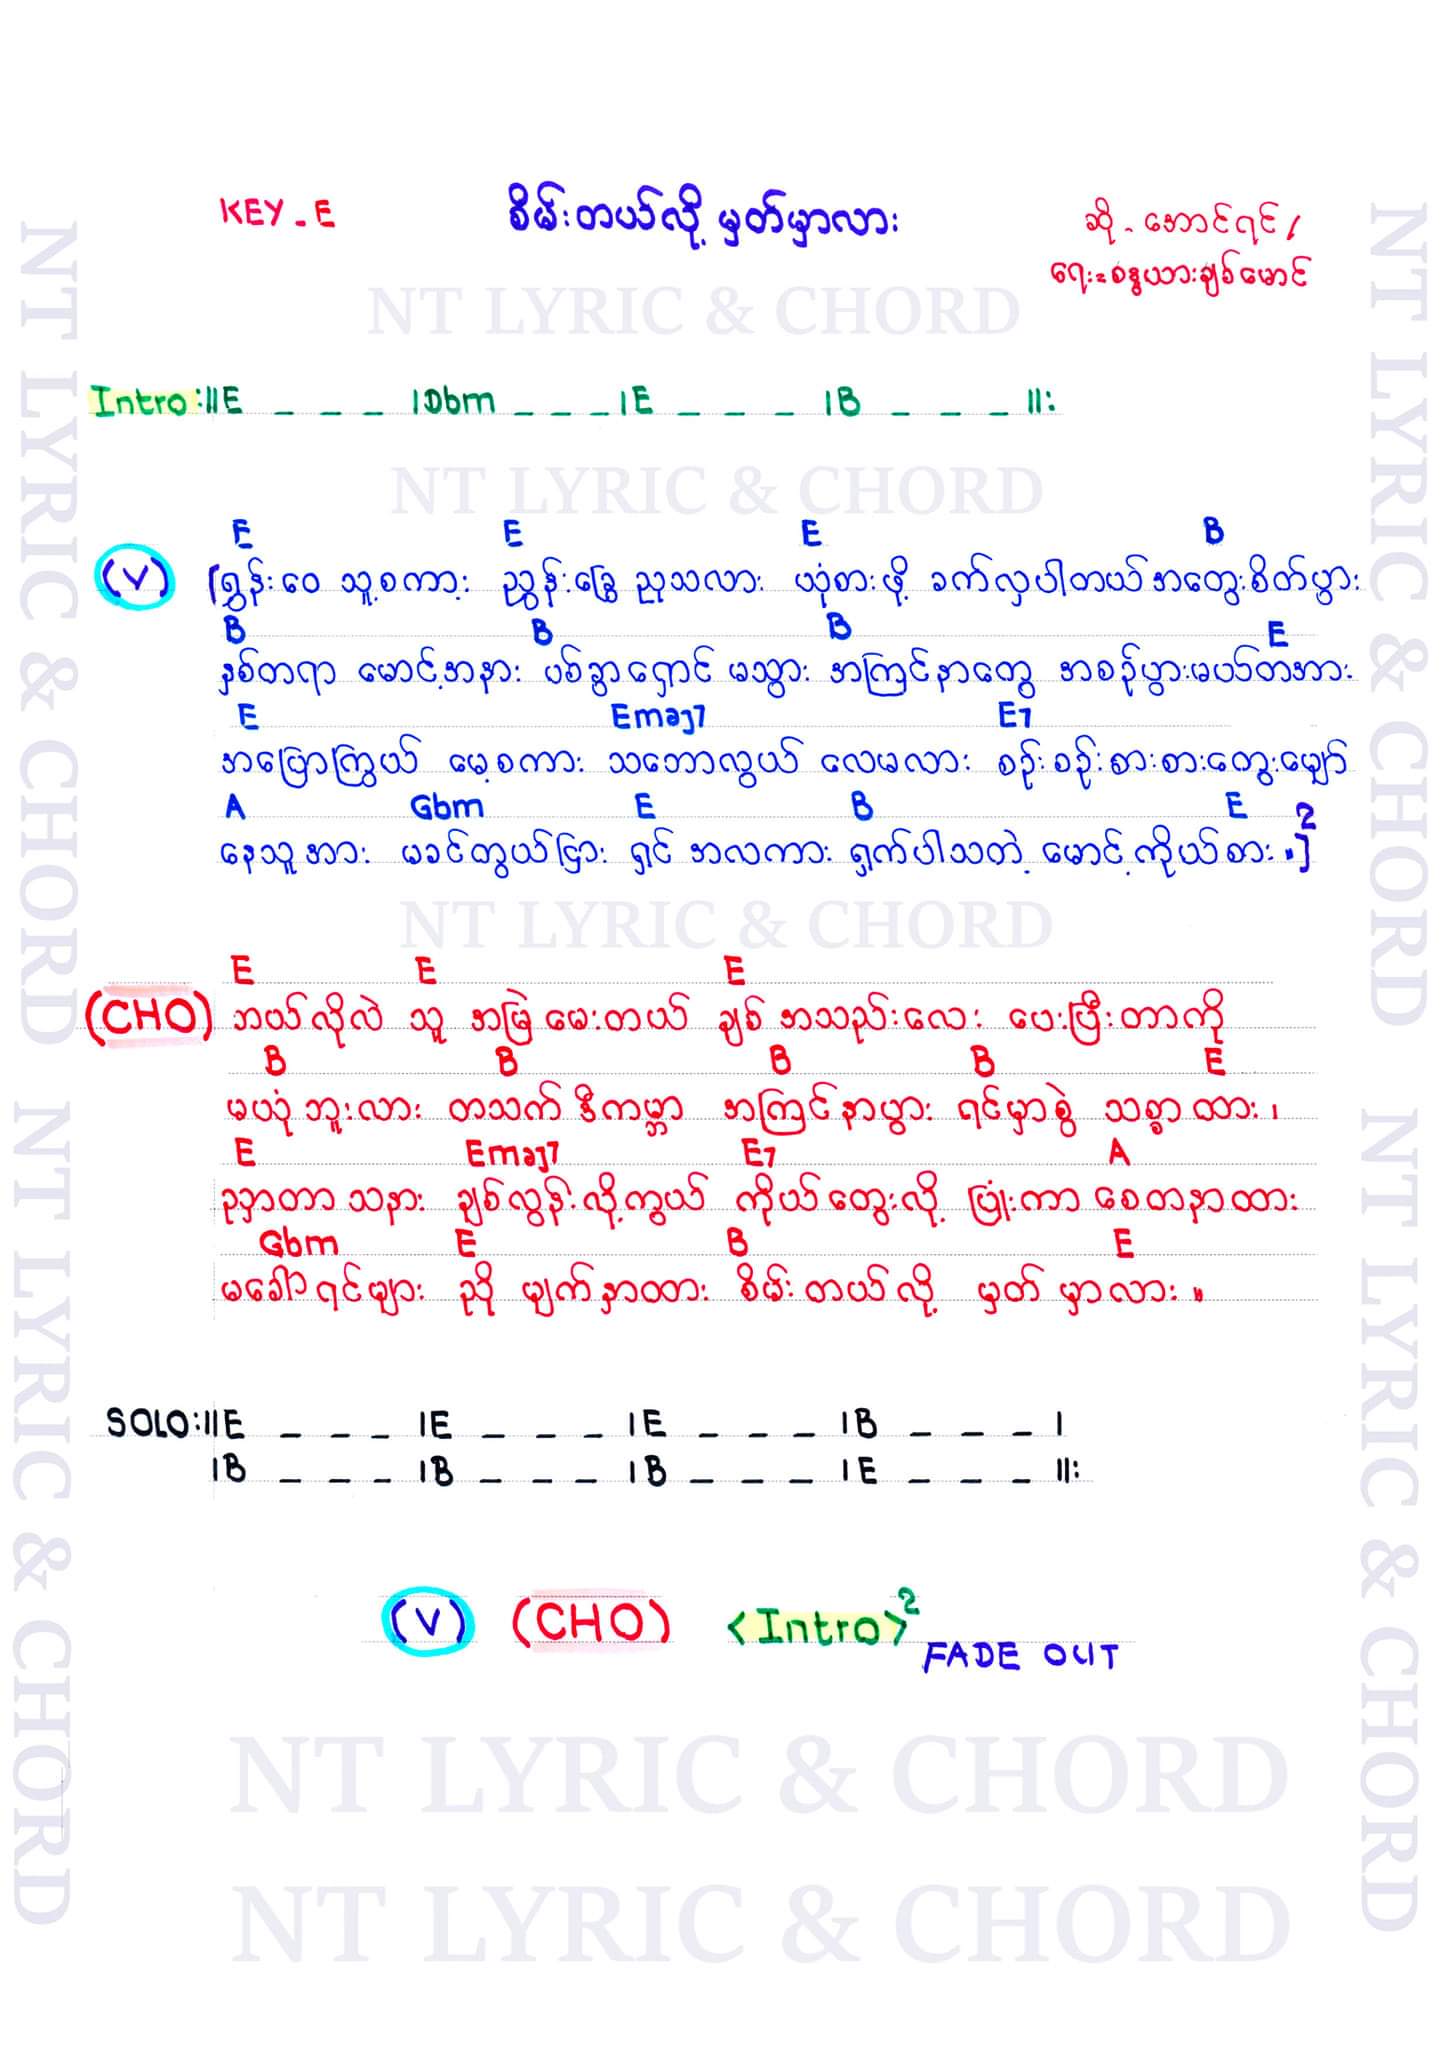 KEY - E
စိမ်းတယ်လို့ မှတ်မှာလား
ဆို - အောင်ရင် /
ရေး = စန္ဒယားချစ်မောင်
NT LYRIC & CHORD
Intro :||E _ _ _ |Dbm _ _ _ |E _ _ _ |B _ _ _ ||:
NT LYRIC & CHORD
E E E B
(V) [ရွှန်းဝေ သူ့စကား ညွှန်းခြွေ ညုသလား ယုံစားဖို့ ခက်လှပါတယ် အတွေးစိတ်ပွား
B B B E
နှစ်တရာ မောင့်အနား ပစ်ခွာရှောင် မသွား အကြင်နာတွေ အစဉ်ပွားမယ်တအား
E Emaj7 E7
အပြောကြွယ် မေ့စကား သဘောလွယ် လေမလား စဉ်းစဉ်းစားစားတွေးမျှော်
A Gbm E B E
နေသူအား မခင်တွယ်ငြား ရှင် အလကား ရှက်ပါသတဲ့ မောင့်ကိုယ်စား ။]2
NT LYRIC & CHORD
E E E
(CHO) ဘယ်လိုလဲ သူ အမြဲမေးတယ် ချစ် အသည်းလေး ပေးပြီးတာကို
B B B B E
မယုံဘူးလား တသက် ဒီကမ္ဘာ အကြင်နာပွား ရင်မှာစွဲ သစ္စာထား ၊
E Emaj7 E7 A
ညှာတာသနား ချစ်လွန်းလို့ကွယ် ကိုယ်တွေးလို့ ပြုံးကာ စေတနာထား
Gbm E B E
မခေါ်ရင်များ ညို မျက်နှာထား စိမ်းတယ်လို့ မှတ်မှာလား ။
SOLO:||E _ _ _ |E _ _ _ |E _ _ _ |B _ _ _ |
|B _ _ _ |B _ _ _ |B _ _ _ |E _ _ _ ||:
(V) (CHO) <Intro>2
FADE OUT
NT LYRIC & CHORD
NT LYRIC & CHORD
NT LYRIC & CHORD
NT LYRIC & CHORD
NT LYRIC & CHORD
NT LYRIC & CHORD